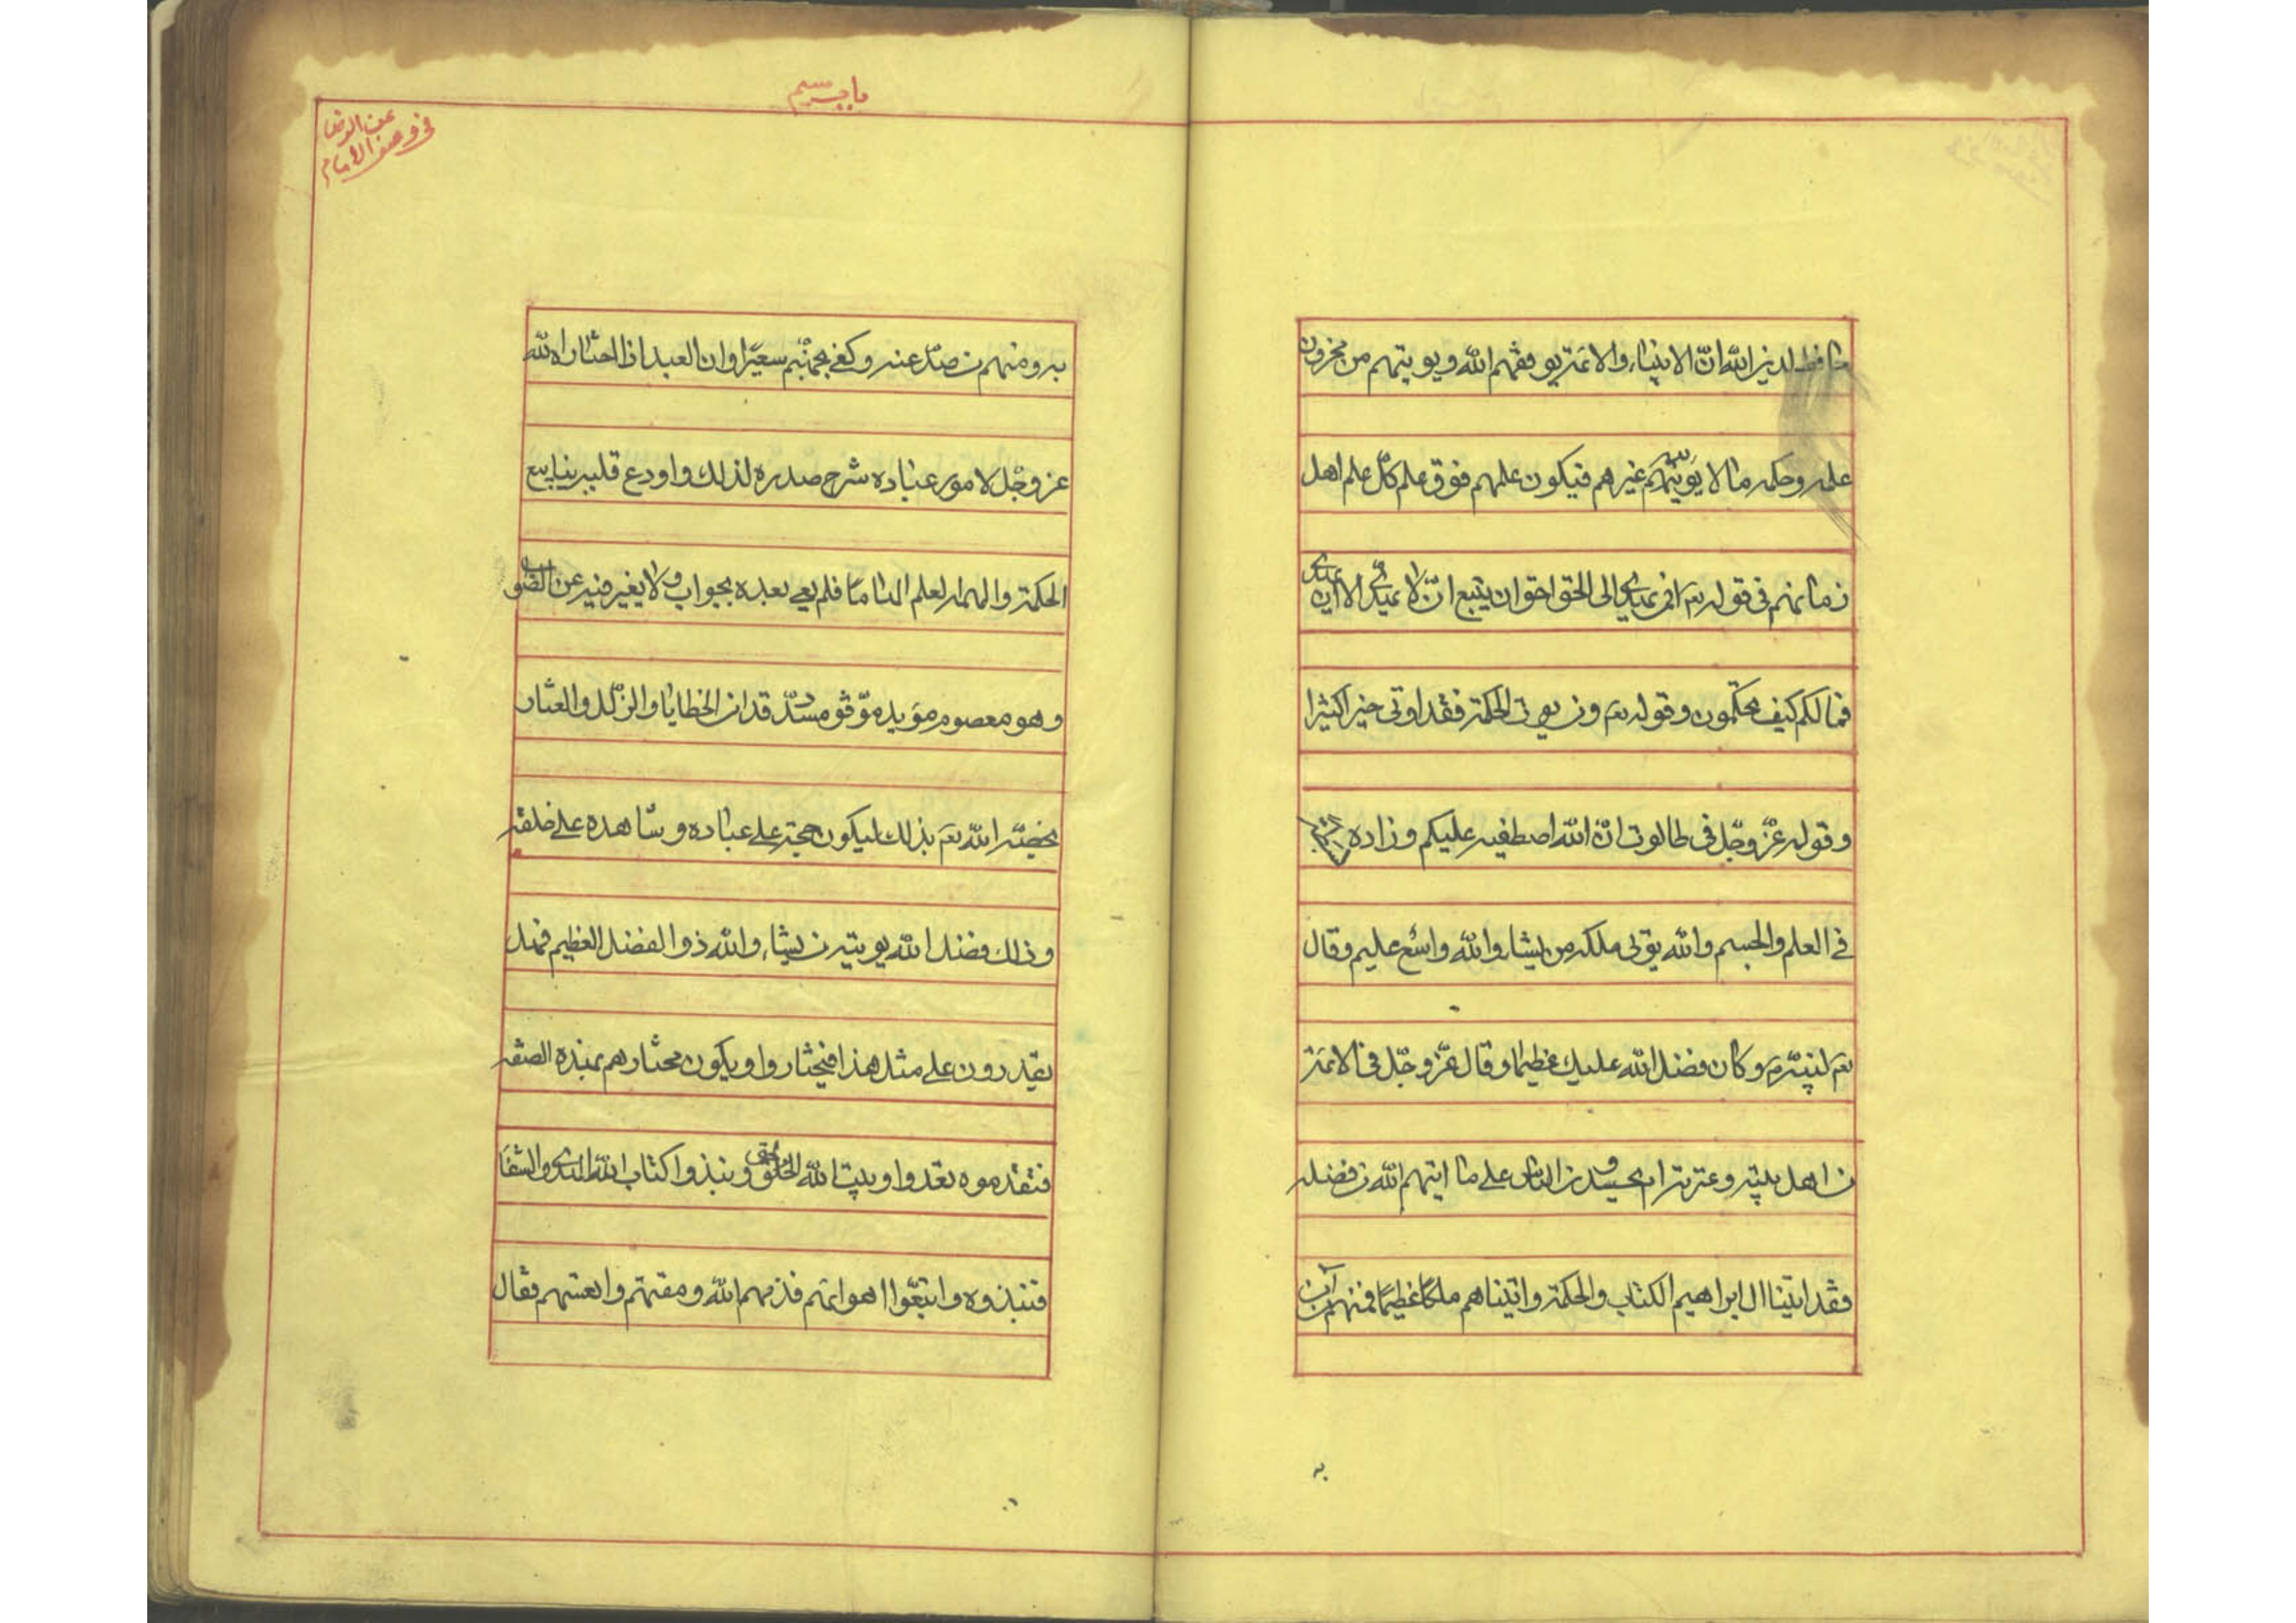 حافظ لدين الله ان الانبياء والائمة يوفقهم الله ويؤتيهم من مخزون
علمه وحكمه ما لا يؤتيه غيرهم فيكون علمهم فوق علم كل علم اهل
زمانهم في قوله تعم افمن يهدي الى الحق احق ان يتبع امن لا يهدي الا ان يهدى
فما لكم كيف تحكمون وقوله تعم ومن يؤتى الحكمة فقد اوتى خيرا كثيرا
وقوله عز وجل في طالوت ان الله اصطفيه عليكم وزاده بسطة
في العلم والجسم والله يؤتى ملكه من يشاء والله واسع عليم وقال
تعم لنبيه م وكان فضل الله عليك عظيما وقال عز وجل في الائمة
من اهل بيته وعترته ام يحسدون الناس على ما اتيهم الله من فضله
فقد اتينا ال ابراهيم الكتاب والحكمة واتيناهم ملكا عظيما فمنهم من آمن
به
باب سيم
في وصف الامام
عن الرضا
به ومنهم من صد عنه وكفى بجهنم سعيرا وان العبد اذا اختاراه الله
عز وجل لامور عباده شرح صدره لذلك واودع قلبه ينابيع
الحكمة والهمه العلم الهاما فلم يعي بعده بجواب ولا يغير فيه عن الصواب
وهو معصوم مؤيد موفق مسدد قد امن الخطايا والزلل والعثار
يخصه الله تعم بذلك ليكون حجته على عباده وشاهده على خلقه
وذلك فضل الله يؤتيه من يشاء والله ذوا الفضل العظيم فهل
يقدرون على مثل هذا فيختاروا او يكون مختارهم بهذه الصفة
فتقدموه تعدوا وبيت الله الحق ونبذوا كتاب الله الهدى والشفا
فنبذوه واتبعوا اهوائهم فذمهم الله ومقتهم واتعسهم فقال